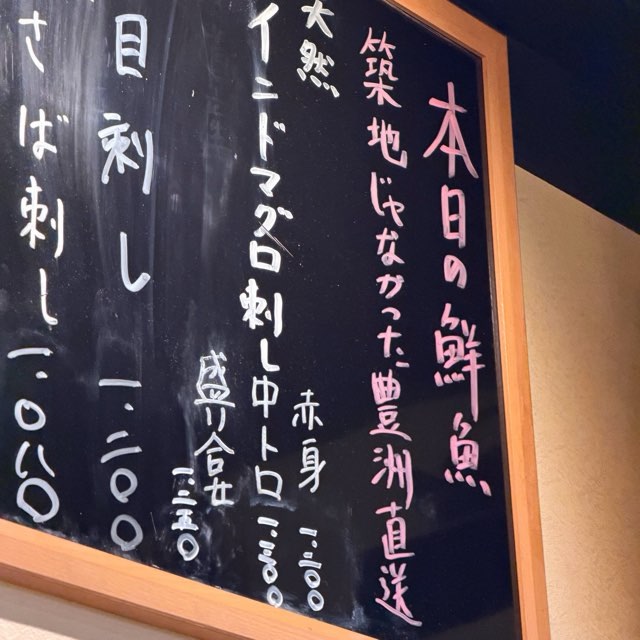 本日の鮮魚
築地じゃなかった豊洲直送
天然
赤身 一、二〇〇
インドマグロ刺し中トロ 一、三〇〇
盛り合せ 一、二五〇
目刺し 一、二〇〇
さば刺し 一、〇八〇